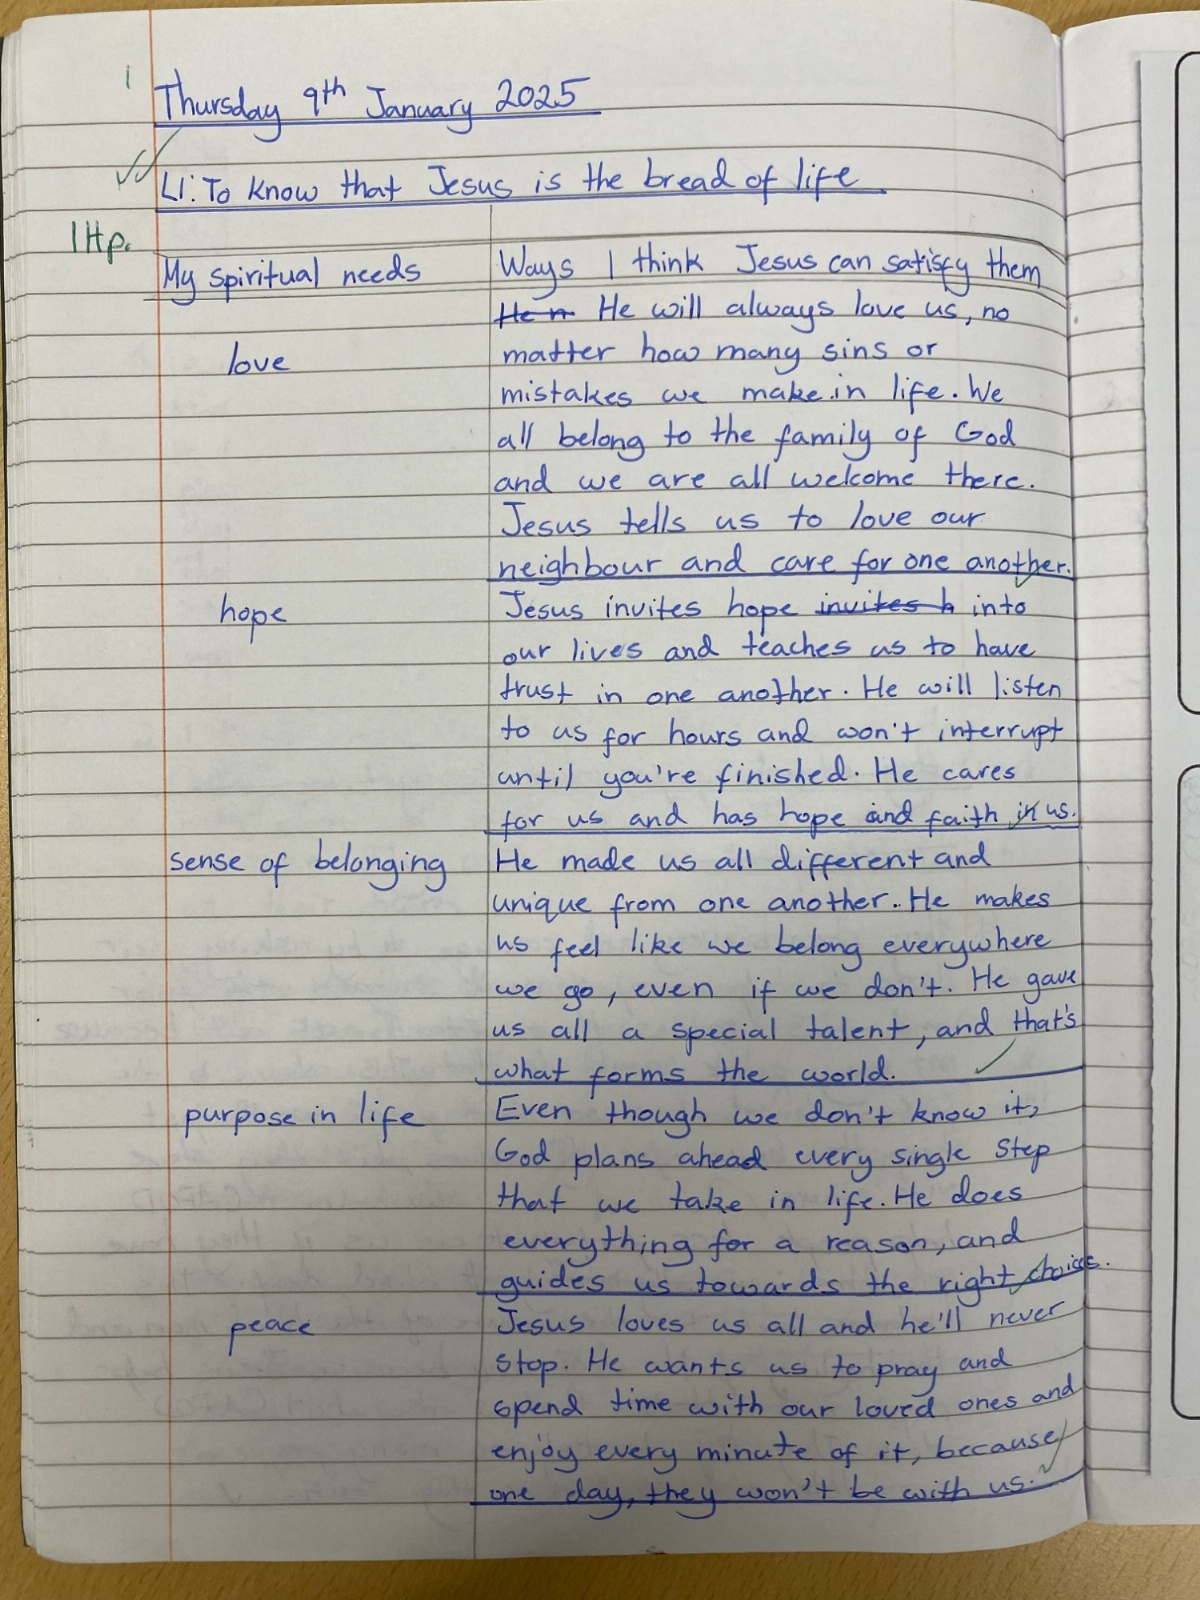 Thursday 9th January 2025
LI: To know that Jesus is the bread of life
1Hp.
My spiritual needs
Ways I think Jesus can satisfy them
love
He n He will always love us, no
matter how many sins or
mistakes we make in life. We
all belong to the family of God
and we are all welcome there.
Jesus tells us to love our
neighbour and care for one another.
hope
Jesus invites hope invites h into
our lives and teaches us to have
trust in one another. He will listen
to us for hours and won't interrupt
until you're finished. He cares
for us and has hope and faith in us.
sense of belonging
He made us all different and
unique from one another. He makes
us feel like we belong everywhere
we go, even if we don't. He gave
us all a special talent, and that's
what forms the world.
purpose in life
Even though we don't know it,
God plans ahead every single step
that we take in life. He does
everything for a reason, and
guides us towards the right choices.
peace
Jesus loves us all and he'll never
stop. He wants us to pray and
spend time with our loved ones and
enjoy every minute of it, because
one day, they won't be with us.